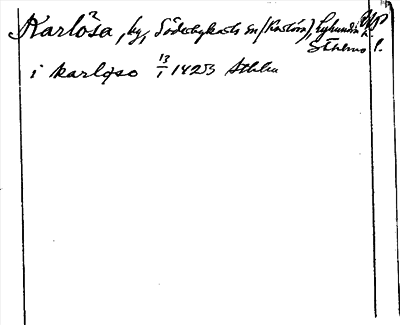 Karlösa, by, Söderbykarls sn (Kustörn), Lyhundra h
Sthlms l.
i karløso 13/1 1423 Sthlm